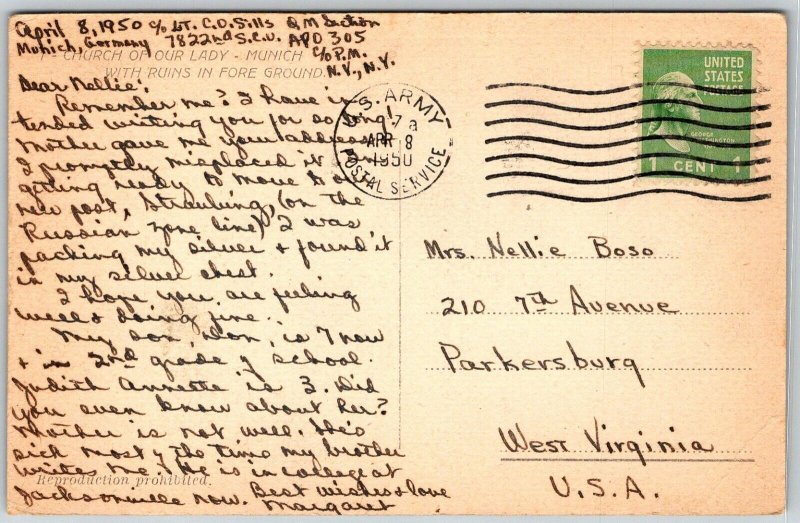 April 8, 1950 c/o Lt. C.D. Sills Q M Section
Munich, Germany 7822nd S.C.U. APO 305
c/o P.M.
N.Y., N.Y.
CHURCH OF OUR LADY - MUNICH
WITH RUINS IN FORE GROUND.
Dear Nellie:
Remember me? I have in-
tended writing you for so long!
Mother gave me your address
I promptly misplaced it
getting ready to move to a
new post, Straubing, (on the
Russian zone line) I was
packing my silver + found it
in my silver chest.
I hope you are feeling
well + doing fine.
My son, Don, is 7 now
+ in 2nd grade of school.
Judith Annette is 3. Did
you even know about her?
Mother is not well. She's
sick most of the time my brother
writes me. He is in college at
Reproduction prohibited.
Jacksonville now. Best wishes + love
Margaret
U.S. ARMY
7 a
APR 8
1950
POSTAL SERVICE
UNITED
STATES
POSTAGE
GEORGE
WASHINGTON
1 CENT 1
Mrs. Nellie Boso
210 7th Avenue
Parkersburg
West Virginia
U.S.A.